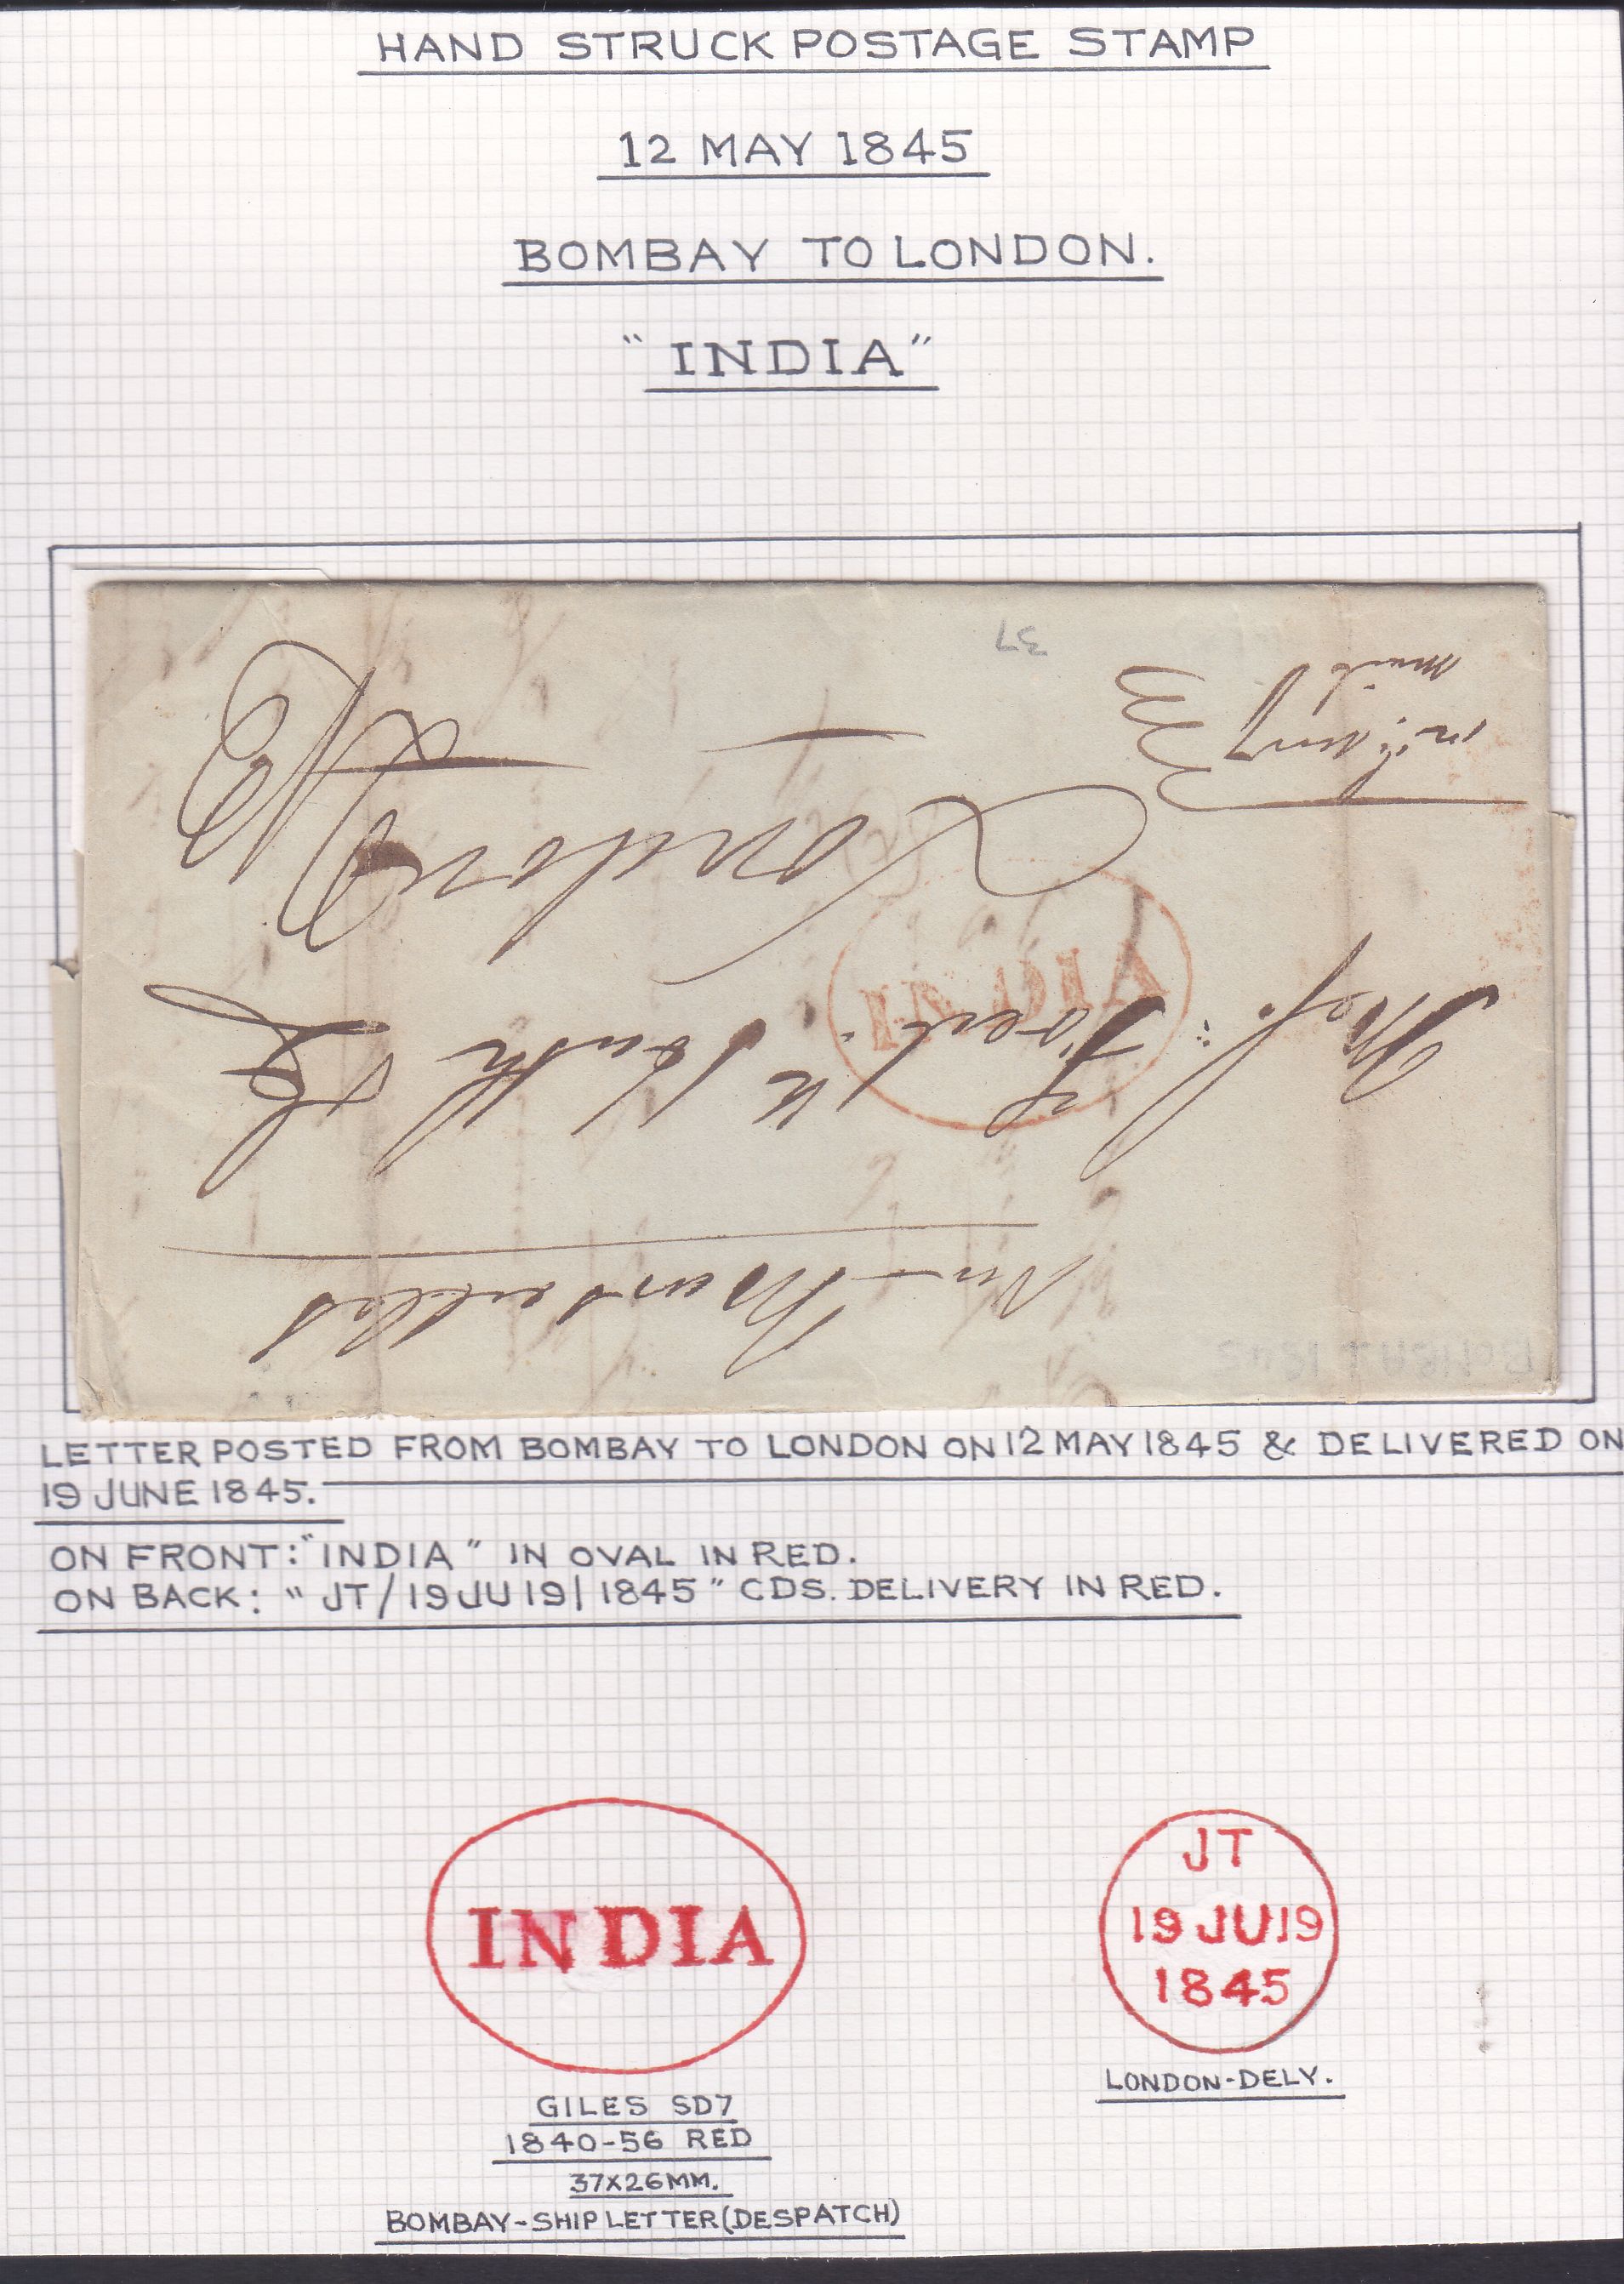 HAND STRUCK POSTAGE STAMP
12 MAY 1845
BOMBAY TO LONDON.
"INDIA"
Via Marseilles
Mess:
Forbes
& Co
INDIA
London
37
BOMBAY 1845
LETTER POSTED FROM BOMBAY TO LONDON ON 12 MAY 1845 & DELIVERED ON
19 JUNE 1845.
ON FRONT: "INDIA" IN OVAL IN RED.
ON BACK: " JT/19JU19/1845" CDS. DELIVERY IN RED.
INDIA
JT
19 JU19
1845
LONDON-DELY.
GILES SD7
1840-56 RED
37X26MM.
BOMBAY-SHIPLETTER(DESPATCH)